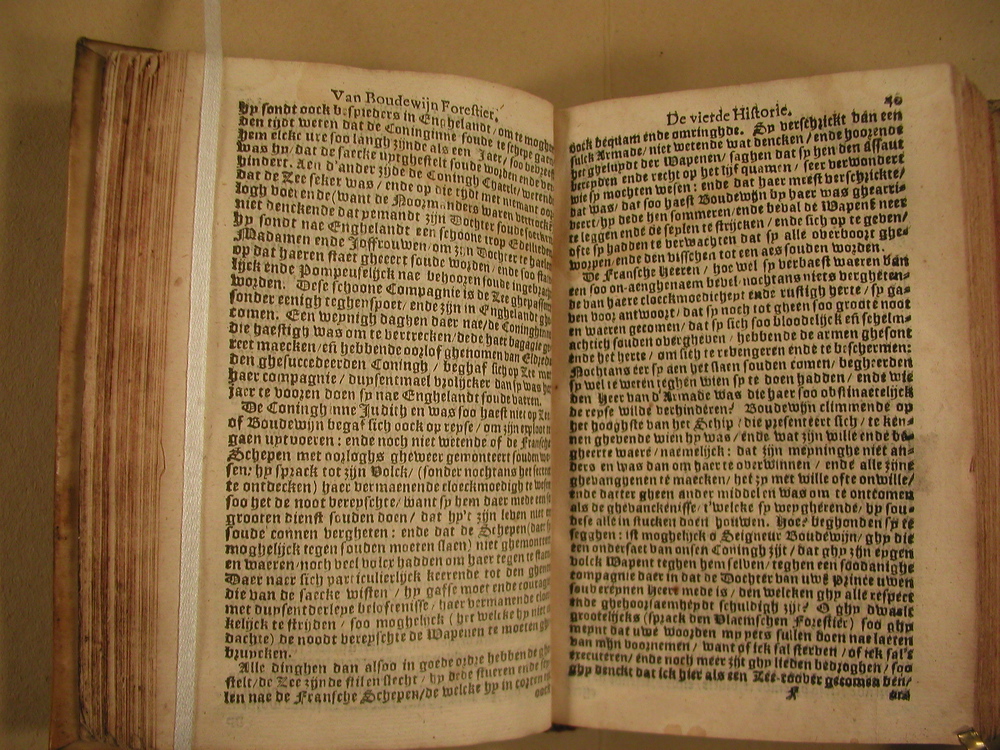 Van Boudewijn Forestier,
hy sondt oock bespieders in Enghelandt / om te moghen
den tijdt weten dat de Coninginne soude te schepe gaen
hem elcke ure soo langh zijnde als een Jaer / soo bevreest
was hy / dat de saecke uytghestelt soude worden ende ver
hindert. Aen d'ander zijde de Coningh Chaerle / wetende
dat de Zee seker was / ende op die tijdt met niemant oor
logh voerende (want de Noormanders waren vertrocken
niet denckende dat yemandt zijn Dochter soude soecken
hy sondt nae Enghelandt een schoone trop Edellieden
Madamen ende Joffrouwen / om zijn Dochter te haelen
op dat haeren staet gheeert soude worden / ende soo sta
lijck ende Pompeuselijck nae behooren soude ingebracht
worden. Dese schoone Compagnie is de Zee ghepasseert
sonder eenigh teghenspoet / ende zijn in Enghelandt ghe
comen. Een weynigh daghen daer nae / de Coninghinne
die haestigh was om te vertrecken / dede haer bagagie ge
reet maecken / eñ hebbende oorlof ghenomen van Eldrede
den ghesuccedeerden Coningh / beghaf sich op Zee met
haer compagnie / duysentmael vrolijcker dan sy was het
jaer te vooren doen sy nae Enghelandt soude varen.
De Coninghinne Judith en was soo haest niet op Zee
of Boudewijn begaf sich oock op reyse / om zijn exploot te
gaen uytvoeren: ende noch niet wetende of de Fransche
Schepen met oorloghs gheweer gemonteert souden we
sen: hy sprack tot zijn Volck / (sonder nochtans het secreet
te ontdecken) haer vermaenende cloeckmoedigh te wesen
soo het de noot bereyschte / want sy hem daer mede een so
grooten dienst souden doen / dat hy't zijn leven niet en
soude connen vergheten: ende dat de Schepen (daer sy
moghelijck tegen souden moeten slaen) niet ghemonteert
en waeren / noch veel volcx hadden om haer tegen te staen
Daer naer sich particulierlijck keerende tot den ghenen
die van de saecke wisten / hy gaffse moet ende couragie
met duysenderleye beloftenisse / haer vermanende cloec
kelijck te strijden / soo moghelijck (het welcke hy niet en
dachte) de noodt bereyschte de Wapenen te moeten ghe
bruycken.
Alle dinghen dan alsoo in goede ordre hebbende ghe
stelt / de Zee zijnde stil en slecht / hy dede stueren ende sey
len nae de Fransche Schepen / de welcke hy in corten tijt
oock
De vierde Historie. 40
oock bequam ende omringhde. Sy verschrickt van een
sulck Armade / niet wetende wat dencken / ende hoorende
het gheluydt der Wapenen / saghen dat sy hen den assaut
bereyden ende recht op het lijf quamen / seer verwondert
wie sy mochten wesen: ende dat haer meest verschrickte /
dat was / dat soo haest Boudewijn by haer was ghearri-
veert / hy dede hen sommeren / ende beval de Wapenē neer
te leggen ende de seylen te strijcken / ende sich op te geben /
ofte sy hadden te verwachten dat sy alle overboort ghe-
worpen / ende den visschen tot een aes souden worden.
De Fransche Heeren / hoe wel sy verbaest waeren van
een soo on-aenghenaem bevel / nochtans niets vergheten-
de van haere cloeckmoedicheyt ende rustigh herte / sy ga-
ben voor antwoort / dat sy noch tot gheen soo groote noot
en waeren gecomen / dat sy sich soo bloodelijck eñ schelm-
achtich souden overgheven / hebbende de armen ghesont
ende het herte / om sich te revengeren ende te beschermen:
Nochtans eer sy aen het slaen souden comen / begheerden
sy wel te weten teghen wien sy te doen hadden / ende wie
den Heer van d'Armade was die haer soo obstinaetelijck
de reyse wilde verhinderen? Boudewijn climmende op
het hooghste van het Schip / die presenteert sich / te ken-
nen ghevende wien hy was / ende wat zijn wille ende be-
gheerte waere / naemelijck: dat zijn meyninghe niet an-
ders en was dan om haer te overwinnen / ende alle zijne
ghevanghenen te maecken / het zy met wille ofte onwille /
ende datter gheen ander middel en was om te ontcomen
als de ghevanckenisse / t'welcke sy weygherende / hy sou-
dese alle in stucken doen houwen. Hoe? beghonden sy te
segghen: ist moghelijck o Seigneur Boudewijn / ghy die
een ondersaet van onsen Coningh zijt / dat ghy zijn eygen
volck Wapent teghen hem selven / teghen een soodanighe
compagnie daer in dat de Dochter van uwē Prince uwen
souvereynen Heere mede is / den welcken ghy alle respect
ende ghehoorsaemheydt schuldigh zijt? O ghy dwaelt
grootelijcks (sprack den Vlaemschen Forestier) soo ghy
meynt dat uwe woorden my yets sullen doen nae laeten
van mijn voornemen / want of ick sal sterben / of ick sal't
executeren / ende noch meer zijt ghy lieden bedroghen / soo
ghy denckt dat ick hier als een Zee-roover gecomen ben /
F